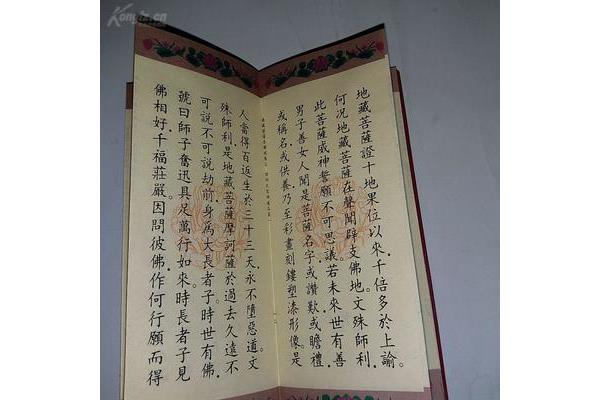 地藏菩薩證十地果位以來.千倍多於上諭.
何況地藏菩薩在聲聞辟支佛地.文殊師利.
此菩薩威神誓願不可思議.若未來世有善
男子善女人聞是菩薩名字.或讚歎.或瞻禮.
或稱名.或供養.乃至彩畫刻鏤塑漆形像.是
人當得百返生於三十三天.永不墮惡道.文
殊師利.是地藏菩薩摩訶薩於過去久遠不
可說不可說劫前.身為大長者子.時世有佛.
號曰師子奮迅具足萬行如來.時長者子見
佛相好.千福莊嚴.因問彼佛作何行願而得